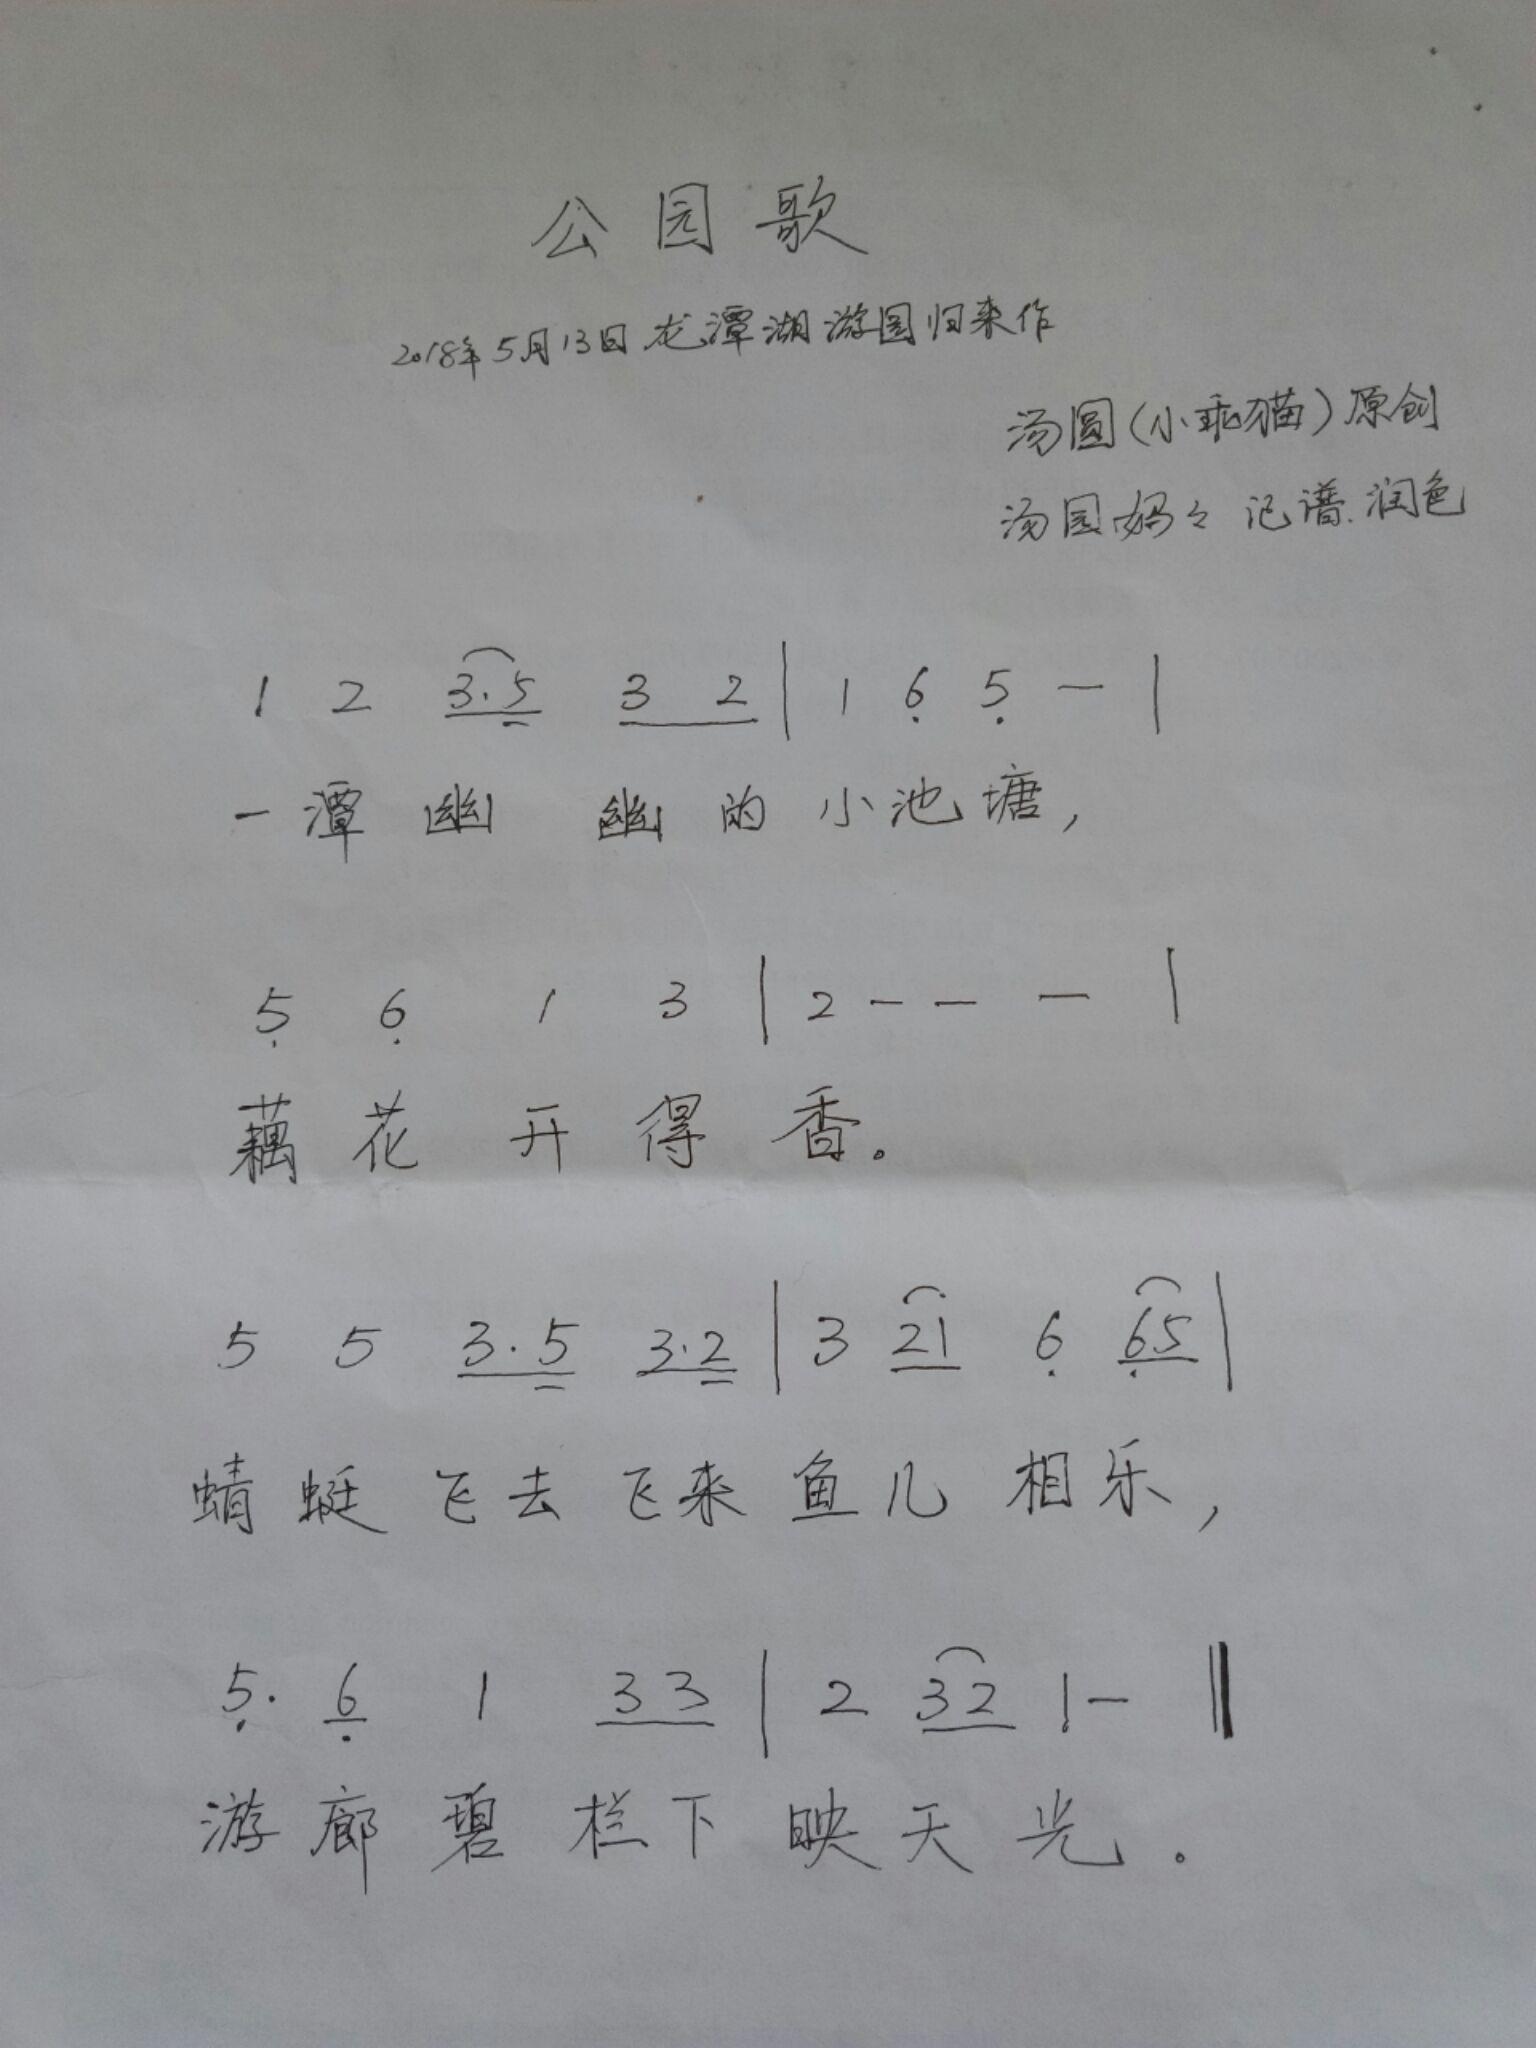 公园歌
2018年5月13日龙潭湖游园归来作
汤圆(小乖猫)原创
汤园妈々 记谱.润色
1 2 3.5 3 2 | 1 6 5 — |
一潭幽幽的小池塘,
5 6 1 3 | 2 — — — |
藕花开得香。
5 5 3.5 3.2 | 3 21 6 65 |
蜻蜓飞去飞来鱼儿相乐,
5. 6 1 33 | 2 32 1 — ‖
游廊碧栏下映天光。